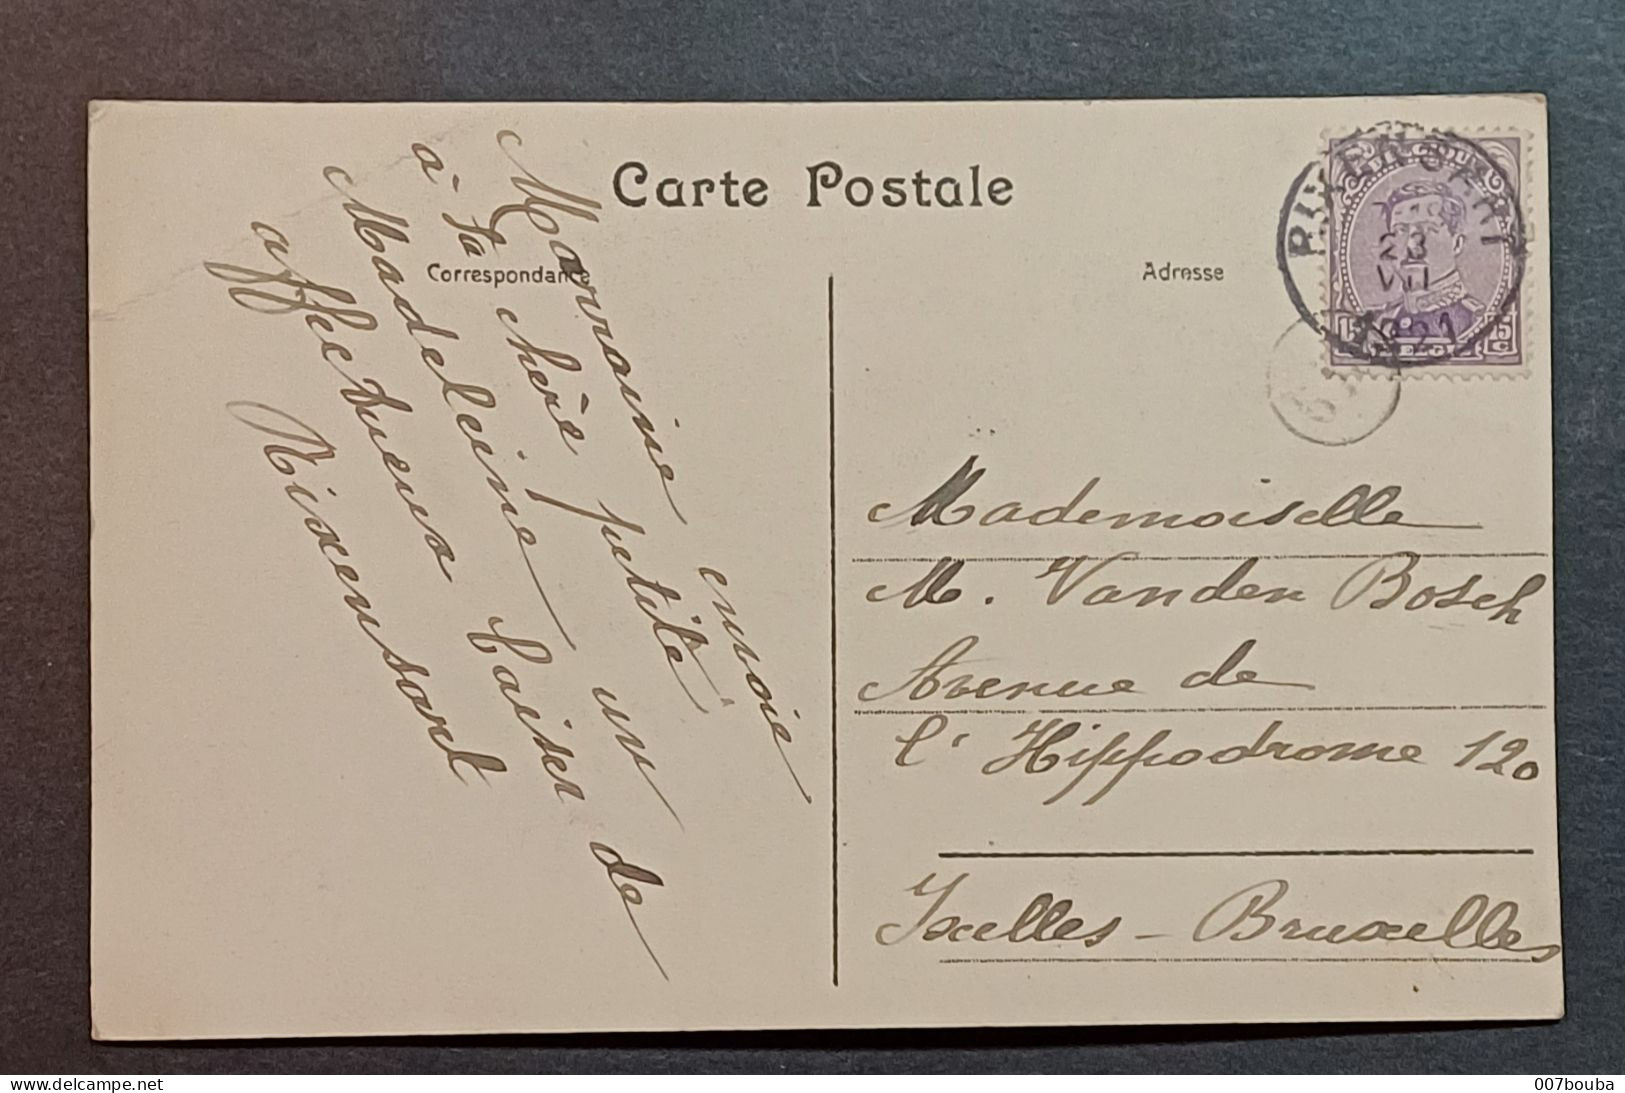 Carte Postale
Correspondance
Adresse
Marraine envoie
à sa chère petite
Madeleine un baiser de
affectueux
Rixensart
RIXENSART
23
VII
1921
15 15
C
BELGIË
Mademoiselle
M. Vanden Bosch
Avenue de
l'Hippodrome 120
Ixelles - Bruxelles
www.delcampe.net
007bouba